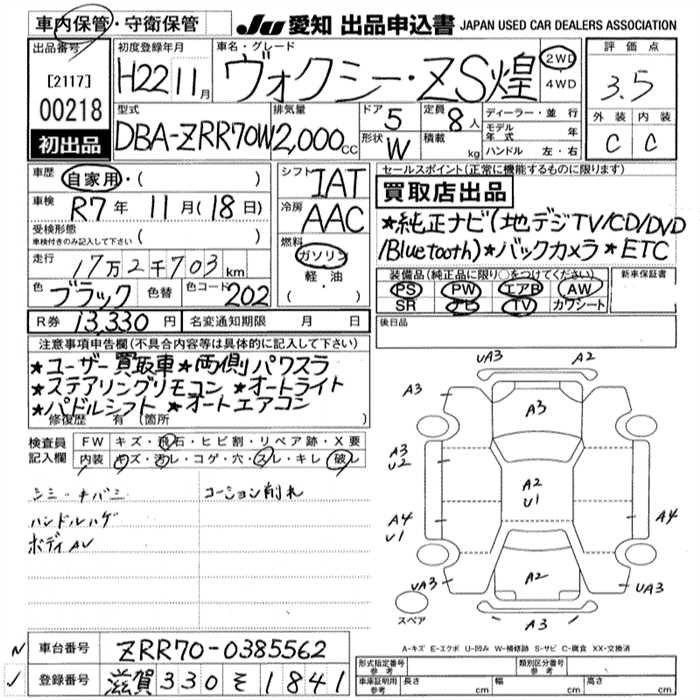 車内保管・守衛保管
JU 愛知 出品申込書 JAPAN USED CAR DEALERS ASSOCIATION
出品番号
[2117]
00218
初出品
初度登録年月
H22 11月
車名・グレード
ヴォクシー・ZS煌
2WD
4WD
評価点
3.5
外装 内装
C C
型式
DBA-ZRR70W
排気量
2,000cc
ドア 5
形状 W
定員 8人
積載 kg
ディーラー・並行
モデル年式 年
ハンドル 左・右
車歴 自家用・( )
車検 R7年 11月(18日)
受検形態
車検付きのみ記入して下さい ( )
走行 17万2千703km
色 ブラック 色替 色コード 202
R券 13,330円 名変通知期限 月 日
シフト IAT
冷房 AAC
燃料 ガソリン
軽・油
( )
セールスポイント(正常に機能するものに限ります)
買取店出品
★純正ナビ(地デジTV/CD/DVD
/Bluetooth)★バックカメラ★ETC
装備品(純正品に限り○をつけてください)
PS PW エアB AW
SR ナビ TV カワシート
新車保証書
後日品
注意事項申告欄(不具合内容等は具体的に記入して下さい)
★ユーザー買取車★両側パワスラ
★ステアリングリモコン★オートライト
★パドルシフト★オートエアコン
修復歴 有(箇所 )
検査員記入欄
FW キズ・飛石・ヒビ割・リペア跡・X要
内装 キズ・汚レ・コゲ・穴・スレ・キレ・破レ
シミ・チバミ コーション削れ
ハンドルハゲ
ボディAU
UA3 A2
A3 A3
A3
U2 A2
U1
A4
U1 A4
UA3 A2 UA3
A3
スペア
A-キズ E-エクボ U-凹み W-補修跡 S-サビ C-腐食 XX-交換済
車台番号 ZRR70-0385562
登録番号 滋賀 330 そ 1841
形式指定番号 参考 類別区分番号 参考
車庫証明用 参考 長さ cm 幅 cm 高さ cm